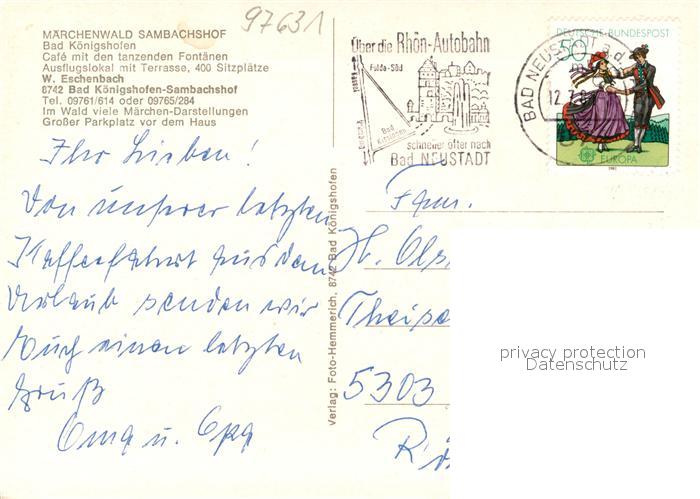 97631
MÄRCHENWALD SAMBACHSHOF
Bad Königshofen
Café mit den tanzenden Fontänen
Ausflugslokal mit Terrasse, 400 Sitzplätze
W. Eschenbach
8742 Bad Königshofen-Sambachshof
Tel. 09761/614 oder 09765/284
Im Wald viele Märchen-Darstellungen
Großer Parkplatz vor dem Haus
Über die Rhön-Autobahn
Fulda-Süd
Bad
Kissingen
schneller öfter nach
Bad NEUSTADT
BAD NEUSTADT a.d.
12.7.8
DEUTSCHE BUNDESPOST
50
EUROPA
1981
Ihr Lieben!
Von unserer letzten
Kaffeefahrt aus dem
Urlaub senden wir
Euch einen letzten
Gruß
Oma u. Opa
Verlag: Foto-Hemmerich, 8742 Bad Königshofen
Fam.
H. Ols
Theis
5303
privacy protection
Datenschutz